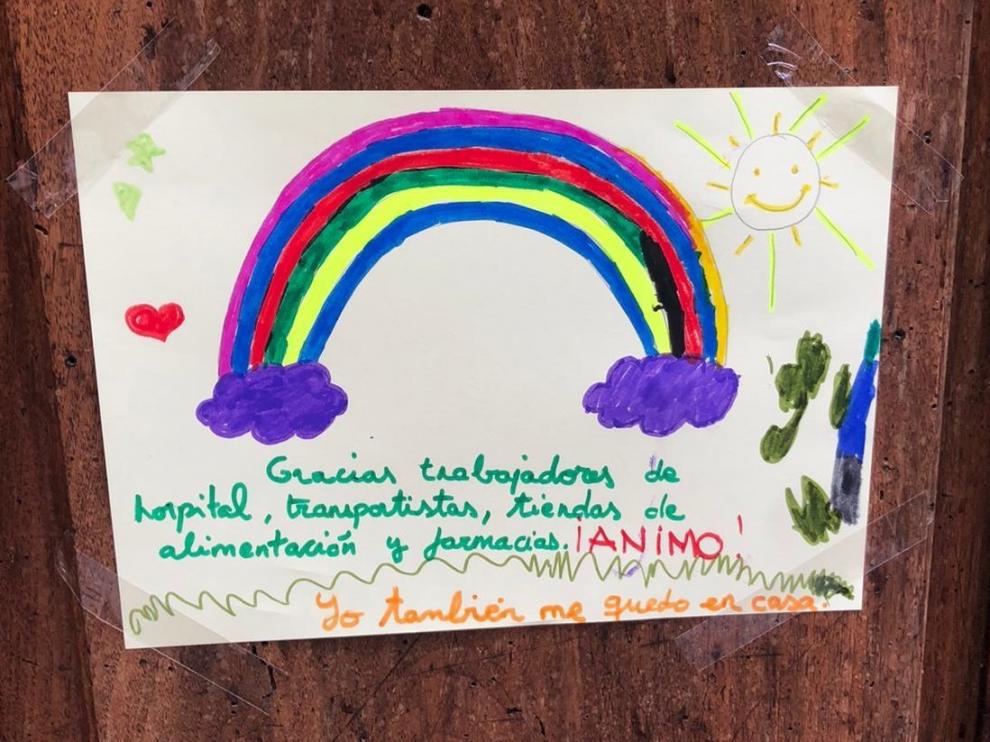 Gracias trabajadores de
hospital, transportistas, tiendas de
alimentación y farmacias. ¡ANIMO!
Yo también me quedo en casa.